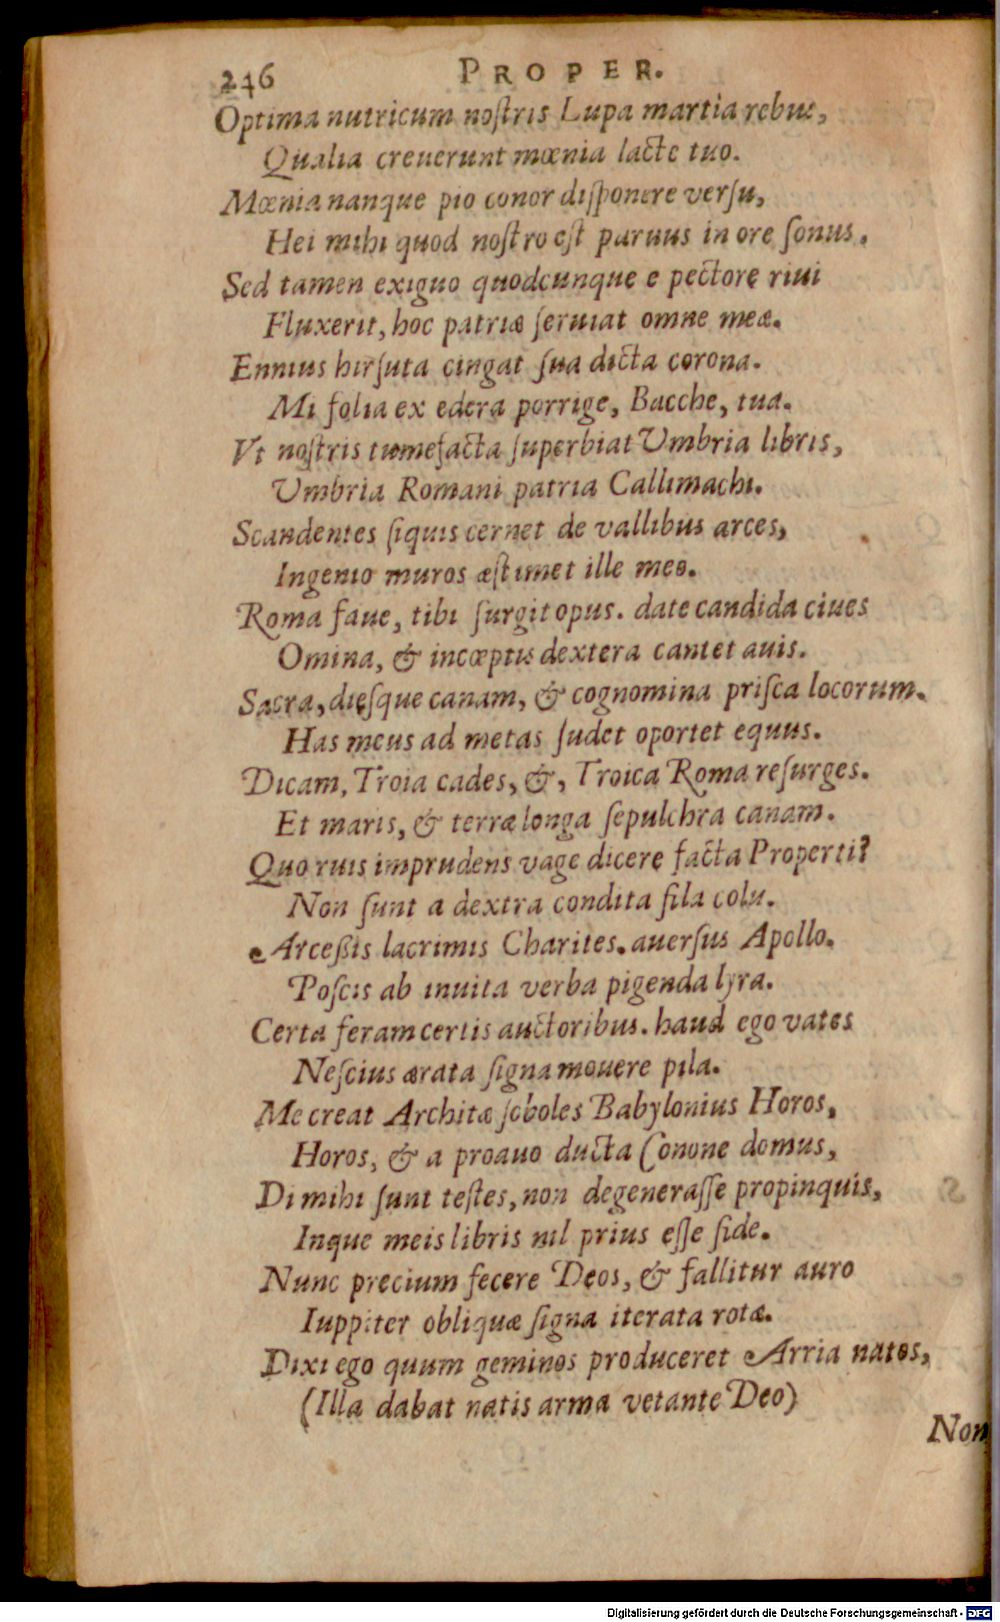 246 PROPER.
Optima nutricum nostris Lupa martia rebus,
Qualia creuerunt mœnia lacte tuo.
Mœnia nanque pio conor disponere versu,
Hei mihi quod nostro est paruus in ore sonus.
Sed tamen exiguo quodcunque e pectore riui
Fluxerit, hoc patriæ seruiat omne meæ.
Ennius hirsuta cingat sua dicta corona.
Mi folia ex edera porrige, Bacche, tua.
Vt nostris tumefacta superbiat Umbria libris,
Umbria Romani patria Callimachi.
Scandentes siquis cernet de vallibus arces,
Ingenio muros æstimet ille meo.
Roma faue, tibi surgit opus. date candida ciues
Omina, & incœptis dextera cantet auis.
Sacra, diesque canam, & cognomina prisca locorum.
Has meus ad metas sudet oportet equus.
Dicam, Troia cades, &, Troica Roma resurges.
Et maris, & terræ longa sepulchra canam.
Quo ruis imprudens vage dicere facta Properti?
Non sunt a dextra condita fila colu.
Arceßis lacrimis Charites. auersus Apollo.
Poscis ab inuita verba pigenda lyra.
Certa feram certis auctoribus. haud ego vates
Nescius ærata signa mouere pila.
Me creat Architæ soboles Babylonius Horos,
Horos, & a proauo ducta Conone domus,
Di mihi sunt testes, non degenerasse propinquis,
Inque meis libris nil prius esse fide.
Nunc precium fecere Deos, & fallitur auro
Iuppiter obliquæ signa iterata rotæ.
Dixi ego quum geminos produceret Arria natos,
(Illa dabat natis arma vetante Deo)
Non
Digitalisierung gefördert durch die Deutsche Forschungsgemeinschaft - DFG